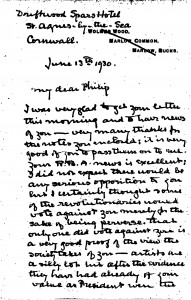 Driftwood Spars Hotel
St. Agnes-by-the-Sea
Cornwall.
HOLMER WOOD,
MARLOW COMMON,
MARLOW, BUCKS.
June 13th 1930.
My dear Philip
I was very glad to get your letter
this morning and to have news
of you — very many thanks for
the notes you enclose; it is very
good of you to pass them on to me.
Your R.B.A. news is excellent;
I did not expect there would be
any serious opposition to you
but I certainly thought some
of the revolutionaries would
vote against you merely for the
sake of being perverse. That
only one did vote against you is
a very good proof of the view the
Society takes of you — artists are
a silly lot but after the evidence
they have had already of your
value as President even the